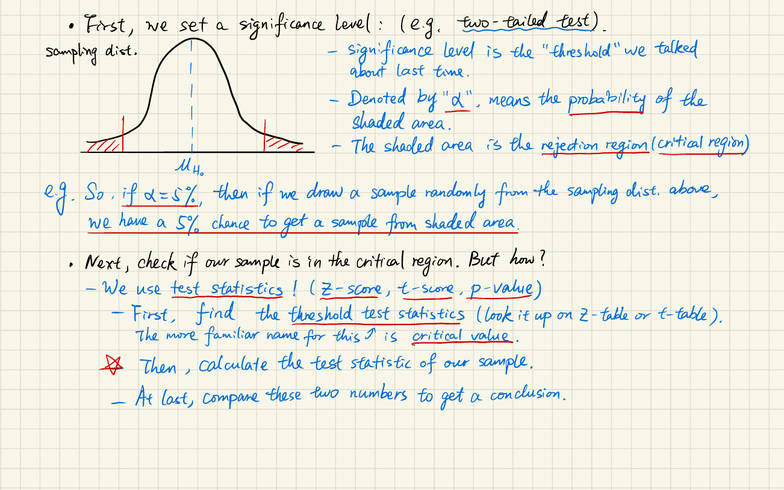 • First, we set a significance level: (e.g. two-tailed test).
sampling dist.
– significance level is the "threshold" we talked
about last time.
– Denoted by "α", means the probability of the
shaded area.
– The shaded area is the rejection region (critical region)
μH₀
e.g. So, if α=5%, then if we draw a sample randomly from the sampling dist. above,
we have a 5% chance to get a sample from shaded area.
• Next, check if our sample is in the critical region. But how?
– We use test statistics! (Z-score, t-score, p-value)
– First, find the threshold test statistics (look it up on Z-table or t-table).
The more familiar name for this ↗ is critical value.
☆ Then, calculate the test statistic of our sample.
– At last, compare these two numbers to get a conclusion.